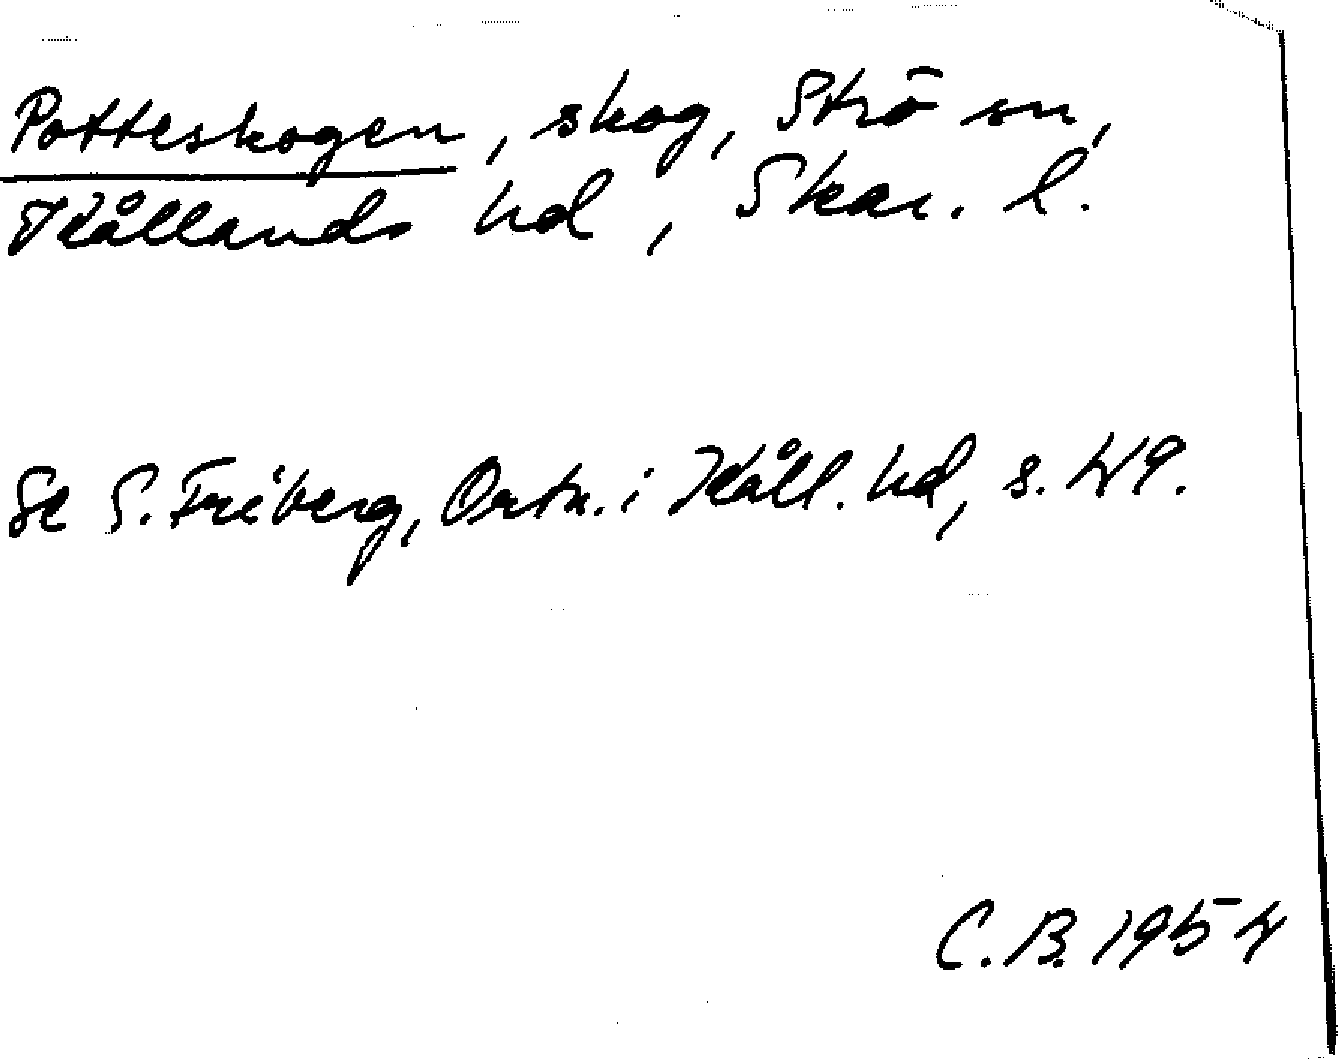 Potteskogen, skog, Strö sn,
Kållands hd, Skar. l.
Se S. Friberg, Ortn. i Kåll. hd, s. 49.
C. B. 1954